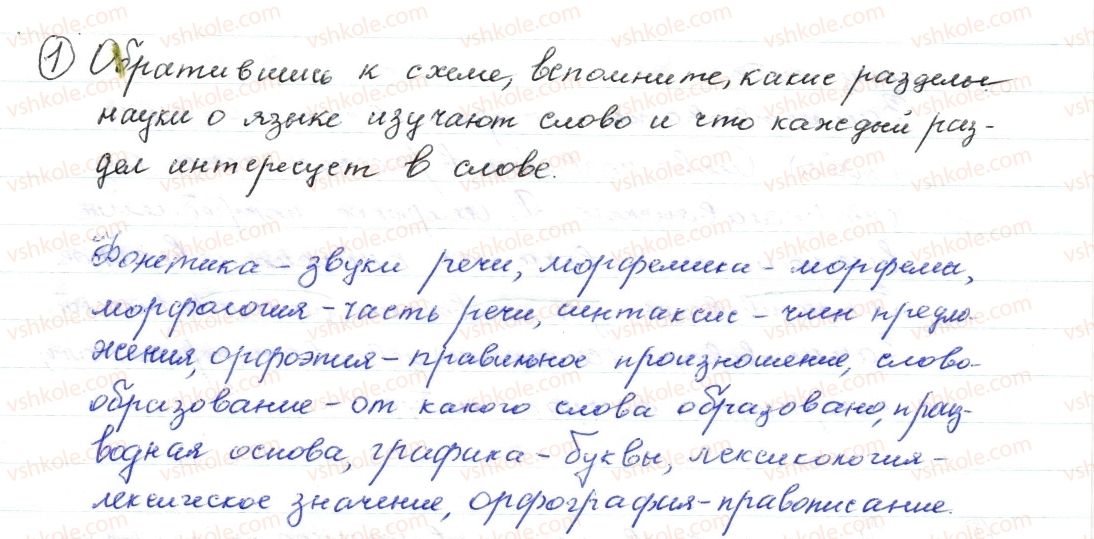 ① Обратившись к схеме, вспомните, какие разделы
науки о языке изучают слово и что каждый раз-
дел интересует в слове.
Фонетика - звуки речи, морфемика - морфемы,
морфология - часть речи, синтаксис - член предло-
жения, орфоэпия - правильное произношение, слово-
образование - от какого слова образовано, праз-
водная основа, графика - буквы, лексикология -
лексическое значение, орфография - правописание.